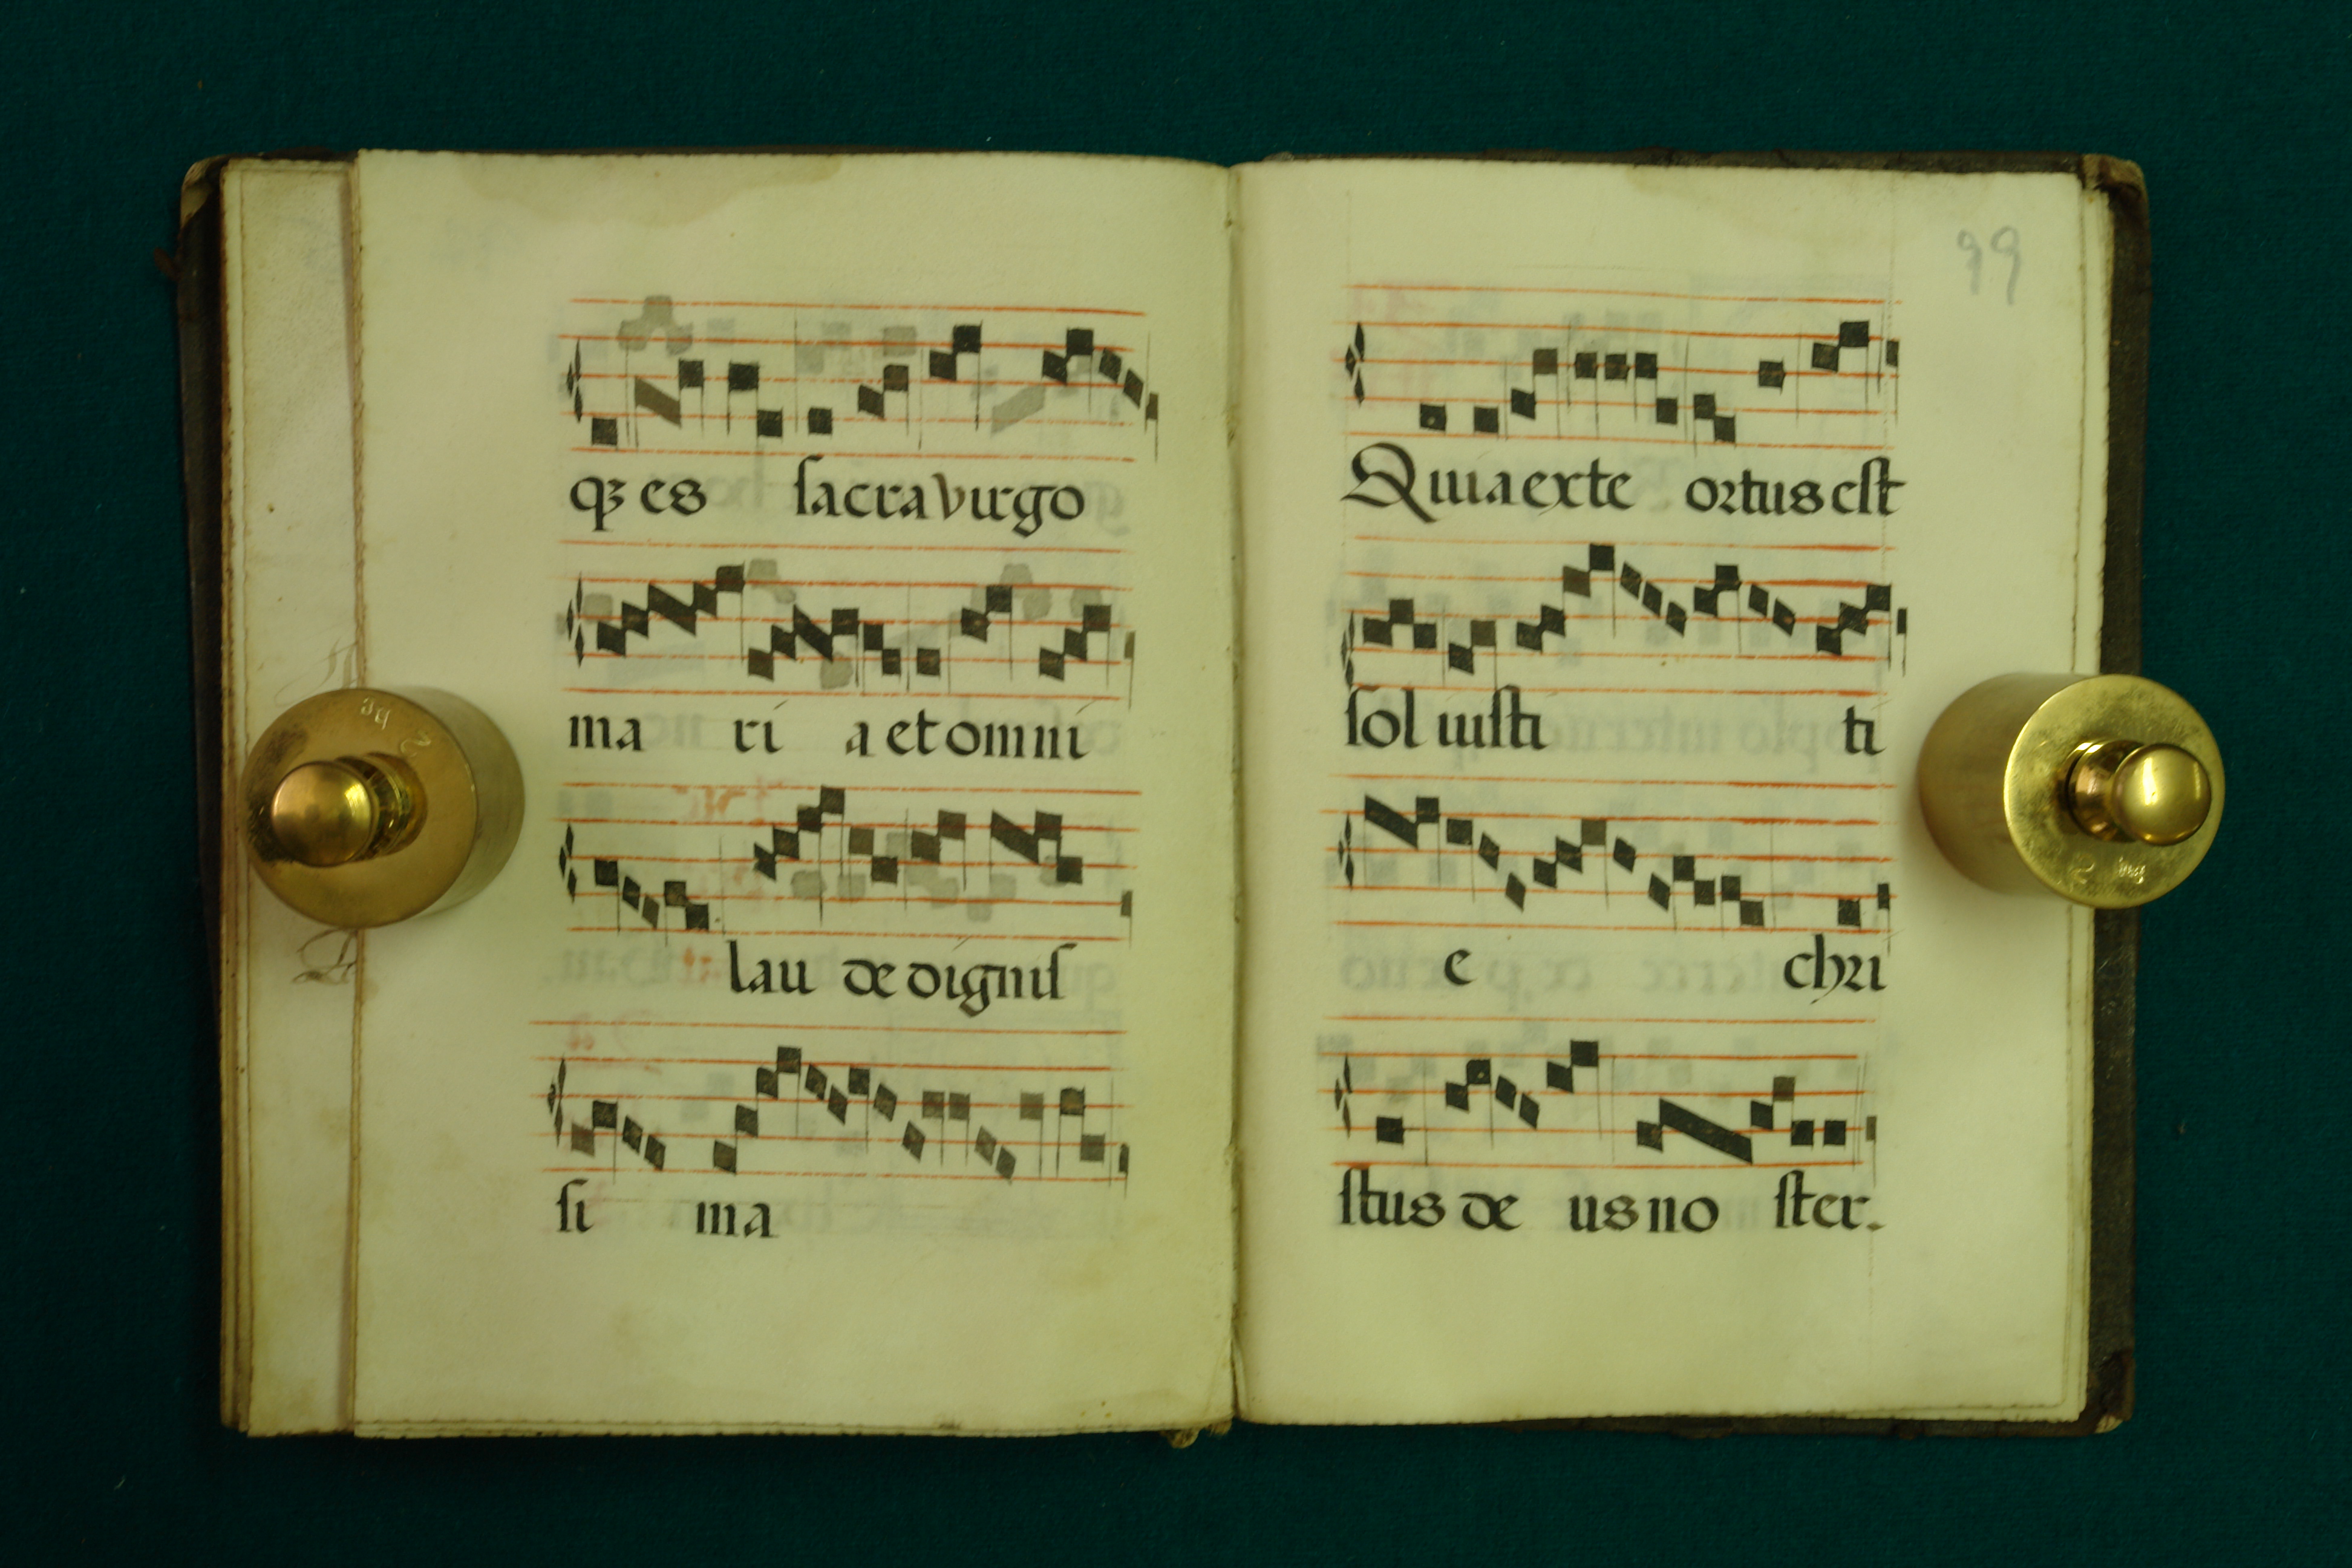 qꝫ es sacra virgo
ma ri a et omni
lau de dignis
si ma
99
Quia ex te ortus est
sol iusti ti
e chri
stus de us no ster.